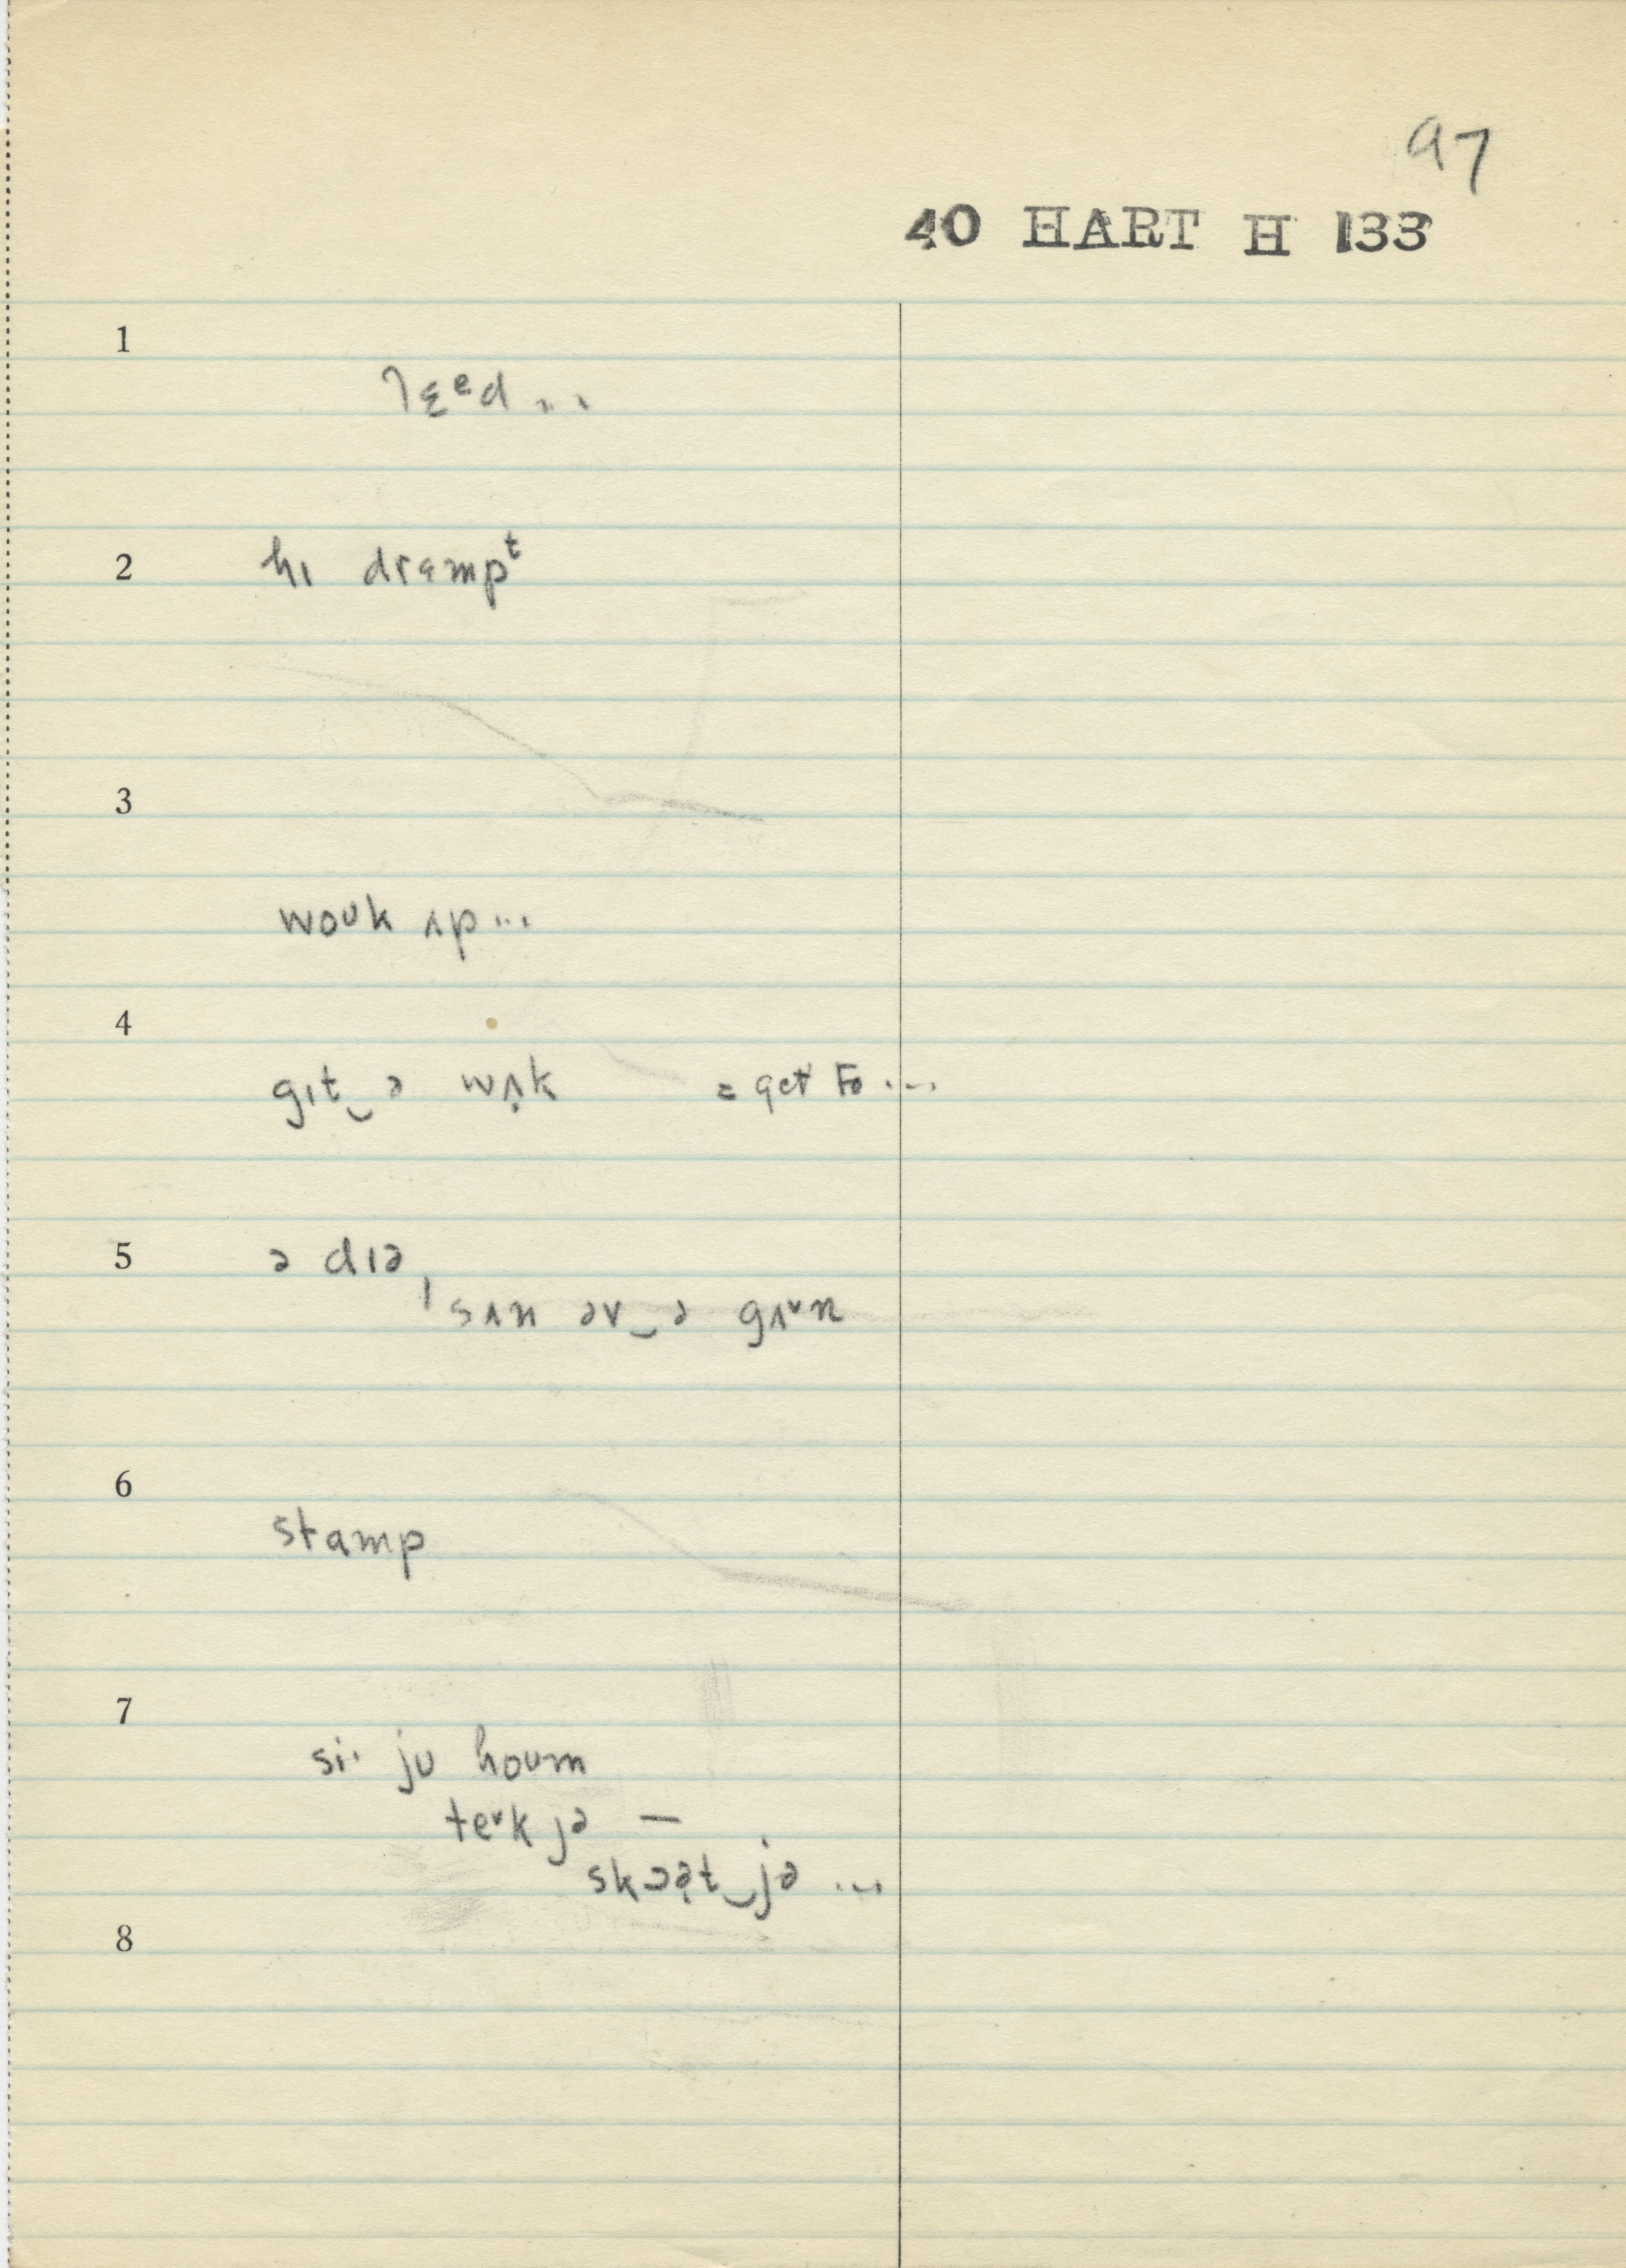 97
40 HART H 133
1
lɛᵉd ...
2 hɪ drɛmpᵗ
3
woʊk ʌp ...
4
gɪt‿ə wʌ̣k = get to ...
5 ə dɪə,
sʌn əv‿ə gʌ˅n
6
stamp
7
si· jʊ hoʊm
te˅k jə —
skɔə̣t‿jə ...
8